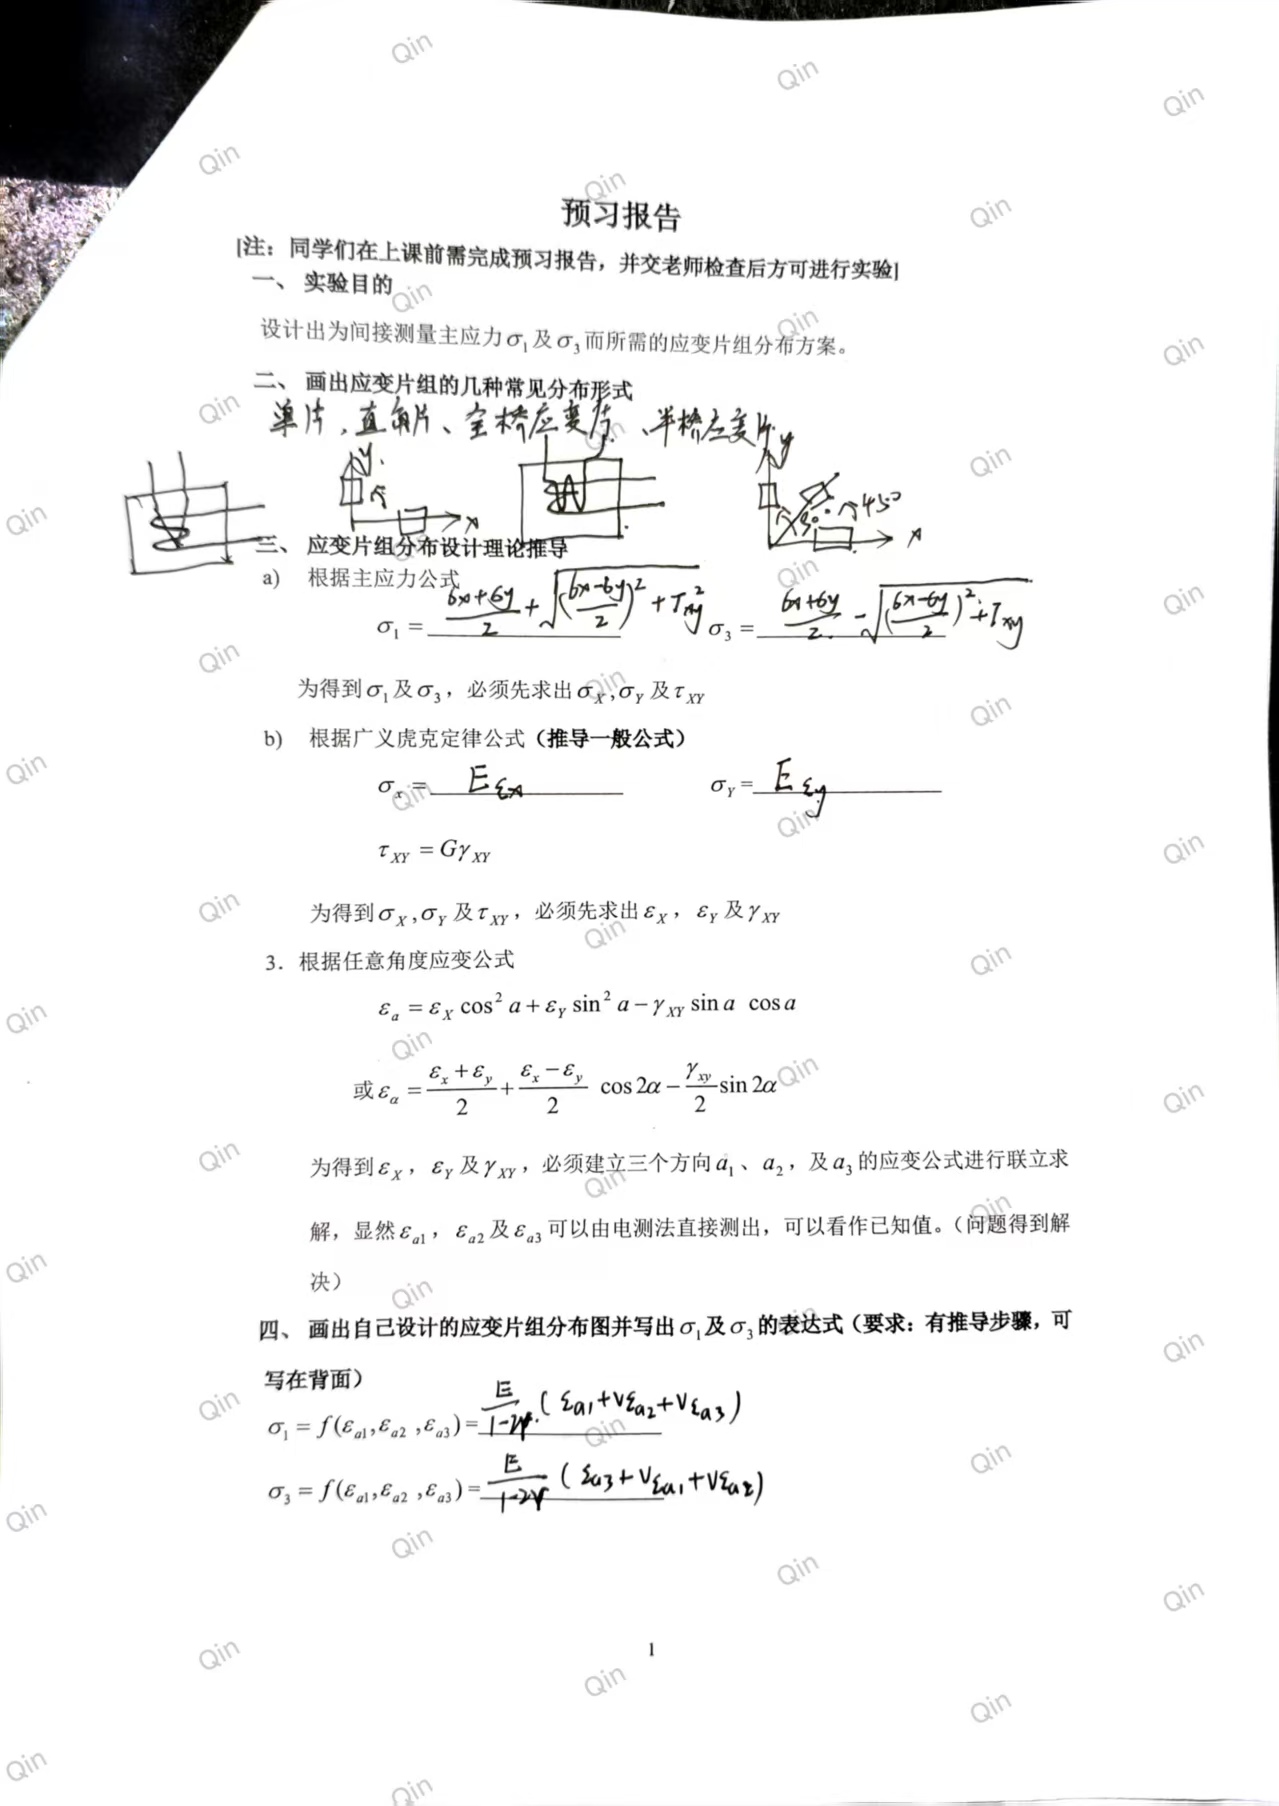 预习报告
[注：同学们在上课前需完成预习报告，并交老师检查后方可进行实验]
一、 实验目的
设计出为间接测量主应力σ₁及σ₃而所需的应变片组分布方案。
二、 画出应变片组的几种常见分布形式
单片、直角片、全桥应变片、半桥应变片
y x
y 45° x
三、 应变片组分布设计理论推导
a) 根据主应力公式
σ₁ = (σx+σy)/2 + √((σx-σy)/2)² + τxy² σ₃ = (σx+σy)/2 - √((σx-σy)/2)² + τxy
为得到σ₁及σ₃，必须先求出σ_X,σ_Y及τ_XY
b) 根据广义虎克定律公式（推导一般公式）
σ_x = Eεx σ_Y = Eεy
τ_XY = Gγ_XY
为得到σ_X,σ_Y及τ_XY，必须先求出ε_X，ε_Y及γ_XY
3．根据任意角度应变公式
ε_a = ε_X cos² a + ε_Y sin² a − γ_XY sin a cos a
或ε_α = (ε_x + ε_y)/2 + (ε_x − ε_y)/2 cos 2α − γ_xy/2 sin 2α
为得到ε_X，ε_Y及γ_XY，必须建立三个方向a₁、a₂，及a₃的应变公式进行联立求
解，显然ε_a1，ε_a2及ε_a3可以由电测法直接测出，可以看作已知值。（问题得到解
决）
四、 画出自己设计的应变片组分布图并写出σ₁及σ₃的表达式（要求：有推导步骤，可
写在背面）
σ₁ = f(ε_a1,ε_a2,ε_a3) = E/(1-2ν) (εa1+νεa2+νεa3)
σ₃ = f(ε_a1,ε_a2,ε_a3) = E/(1-2ν) (εa3+νεa1+νεa2)
1
Qin